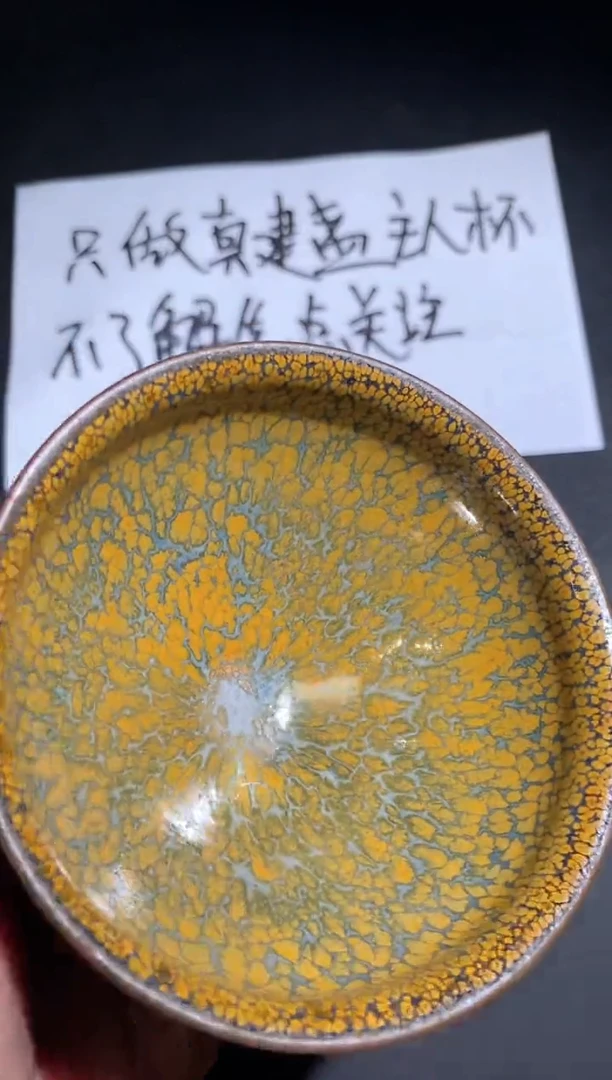 只做真建盏主人杯
不了解先点关注